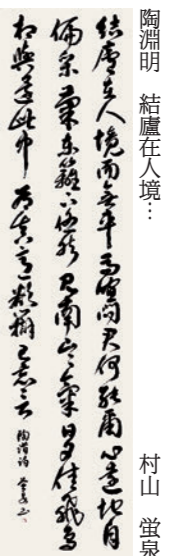 陶淵明 結廬在人境… 村山 螢泉
結廬在人境而無車馬喧問君何能爾心遠地自
偏采菊東籬下悠然見南山々氣日夕佳飛鳥
相與還此中有真意欲辨已忘言 陶潜詩